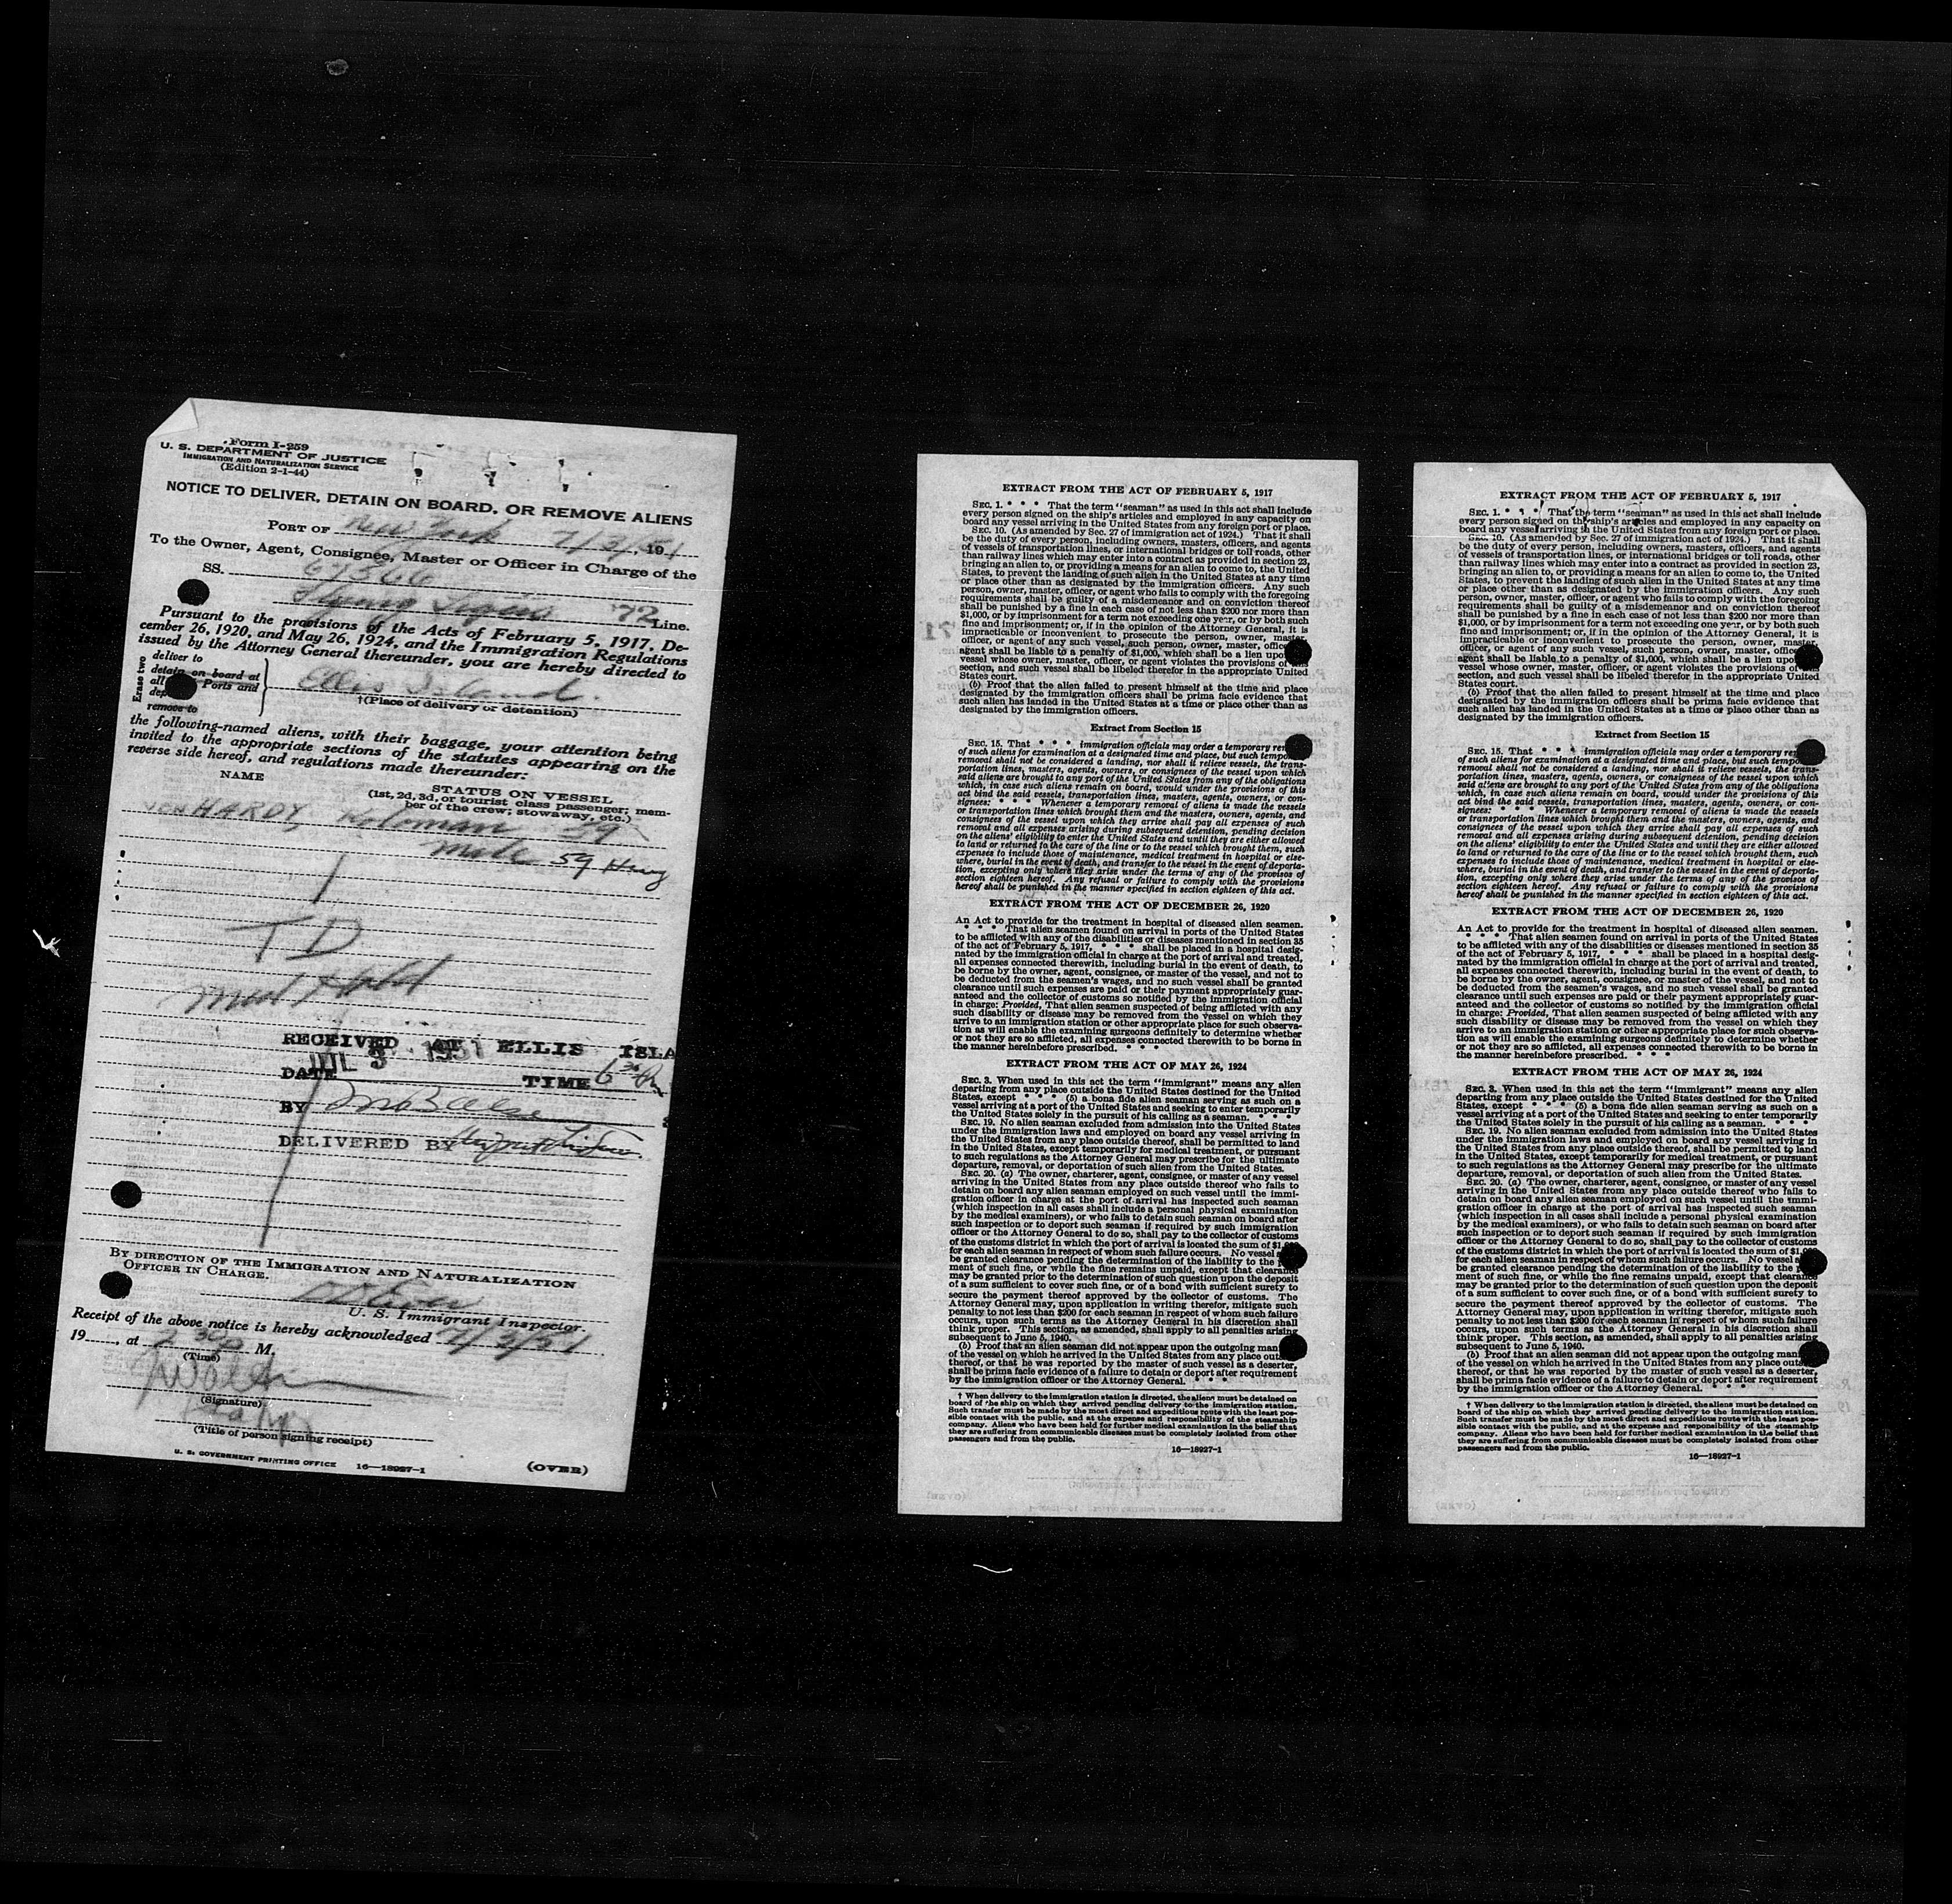 Form I-259
U. S. DEPARTMENT OF JUSTICE
IMMIGRATION AND NATURALIZATION SERVICE
(Edition 2-1-44)
NOTICE TO DELIVER, DETAIN ON BOARD, OR REMOVE ALIENS
PORT OF New York 7/3/51, 19
To the Owner, Agent, Consignee, Master or Officer in Charge of the
SS.
Flying 72 Line.
Pursuant to the provisions of the Acts of February 5, 1917, De-
cember 26, 1920, and May 26, 1924, and the Immigration Regulations
issued by the Attorney General thereunder, you are hereby directed to
Erase two
deliver to
detain on board at
all Ports and
remove to
Ellis Island.
†(Place of delivery or detention)
the following-named aliens, with their baggage, your attention being
invited to the appropriate sections of the statutes appearing on the
reverse side hereof, and regulations made thereunder:
NAME
STATUS ON VESSEL
(1st, 2d, 3d, or tourist class passenger; mem-
ber of the crew; stowaway, etc.)
von HARDY, Koloman 59
male 59 Hung
T D
Med Hold
RECEIVED AT ELLIS ISLA
JUL 3 1951
DATE TIME 6 30 PM
BY
DELIVERED BY
BY DIRECTION OF THE IMMIGRATION AND NATURALIZATION
OFFICER IN CHARGE.
U. S. Immigrant Inspector.
Receipt of the above notice is hereby acknowledged 7/3/51
19, at 2 30 P M.
(Time)
(Signature)
(Title of person signing receipt)
U. S. GOVERNMENT PRINTING OFFICE 16—18927-1 (OVER)
EXTRACT FROM THE ACT OF FEBRUARY 5, 1917
SEC. 1. * * * That the term "seaman" as used in this act shall include
every person signed on the ship's articles and employed in any capacity on
board any vessel arriving in the United States from any foreign port or place.
SEC. 10. (As amended by Sec. 27 of immigration act of 1924.) That it shall
be the duty of every person, including owners, masters, officers, and agents
of vessels of transportation lines, or international bridges or toll roads, other
than railway lines which may enter into a contract as provided in section 23,
bringing an alien to, or providing a means for an alien to come to, the United
States, to prevent the landing of such alien in the United States at any time
or place other than as designated by the immigration officers. Any such
person, owner, master, officer, or agent who fails to comply with the foregoing
requirements shall be guilty of a misdemeanor and on conviction thereof
shall be punished by a fine in each case of not less than $200 nor more than
$1,000, or by imprisonment for a term not exceeding one year, or by both such
fine and imprisonment; or, if in the opinion of the Attorney General, it is
impracticable or inconvenient to prosecute the person, owner, master,
officer, or agent of any such vessel, such person, owner, master, office
agent shall be liable to a penalty of $1,000, which shall be a lien upo
vessel whose owner, master, officer, or agent violates the provisions of
section, and such vessel shall be libeled therefor in the appropriate United
States court.
(b) Proof that the alien failed to present himself at the time and place
designated by the immigration officers shall be prima facie evidence that
such alien has landed in the United States at a time or place other than as
designated by the immigration officers.
Extract from Section 15
SEC. 15. That * * * immigration officials may order a temporary rem
of such aliens for examination at a designated time and place, but such tempo
removal shall not be considered a landing, nor shall it relieve vessels, the trans-
portation lines, masters, agents, owners, or consignees of the vessel upon which
said aliens are brought to any port of the United States from any of the obligations
which, in case such aliens remain on board, would under the provisions of this
act bind the said vessels, transportation lines, masters, agents, owners, or con-
signees: * * * Whenever a temporary removal of aliens is made the vessels
or transportation lines which brought them and the masters, owners, agents, and
consignees of the vessel upon which they arrive shall pay all expenses of such
removal and all expenses arising during subsequent detention, pending decision
on the aliens' eligibility to enter the United States and until they are either allowed
to land or returned to the care of the line or to the vessel which brought them, such
expenses to include those of maintenance, medical treatment in hospital or else-
where, burial in the event of death, and transfer to the vessel in the event of deporta-
tion, excepting only where they arise under the terms of any of the provisos of
section eighteen hereof. Any refusal or failure to comply with the provisions
hereof shall be punished in the manner specified in section eighteen of this act.
EXTRACT FROM THE ACT OF DECEMBER 26, 1920
An Act to provide for the treatment in hospital of diseased alien seamen.
* * * * That alien seamen found on arrival in ports of the United States
to be afflicted with any of the disabilities or diseases mentioned in section 35
of the act of February 5, 1917, * * * shall be placed in a hospital desig-
nated by the immigration official in charge at the port of arrival and treated,
all expenses connected therewith, including burial in the event of death, to
be borne by the owner, agent, consignee, or master of the vessel, and not to
be deducted from the seamen's wages, and no such vessel shall be granted
clearance until such expenses are paid or their payment appropriately guar-
anteed and the collector of customs so notified by the immigration official
in charge: Provided, That alien seamen suspected of being afflicted with any
such disability or disease may be removed from the vessel on which they
arrive to an immigration station or other appropriate place for such observa-
tion as will enable the examining surgeons definitely to determine whether
or not they are so afflicted, all expenses connected therewith to be borne in
the manner hereinbefore prescribed. * * *
EXTRACT FROM THE ACT OF MAY 26, 1924
SEC. 3. When used in this act the term "immigrant" means any alien
departing from any place outside the United States destined for the United
States, except * * * (5) a bona fide alien seaman serving as such on a
vessel arriving at a port of the United States and seeking to enter temporarily
the United States solely in the pursuit of his calling as a seaman. * * * *
SEC. 19. No alien seaman excluded from admission into the United States
under the immigration laws and employed on board any vessel arriving in
the United States from any place outside thereof, shall be permitted to land
in the United States, except temporarily for medical treatment, or pursuant
to such regulations as the Attorney General may prescribe for the ultimate
departure, removal, or deportation of such alien from the United States.
SEC. 20. (a) The owner, charterer, agent, consignee, or master of any vessel
arriving in the United States from any place outside thereof who fails to
detain on board any alien seaman employed on such vessel until the immi-
gration officer in charge at the port of arrival has inspected such seaman
(which inspection in all cases shall include a personal physical examination
by the medical examiners), or who fails to detain such seaman on board after
such inspection or to deport such seaman if required by such immigration
officer or the Attorney General to do so, shall pay to the collector of customs
of the customs district in which the port of arrival is located the sum of $1,
for each alien seaman in respect of whom such failure occurs. No vessel
be granted clearance pending the determination of the liability to the
ment of such fine, or while the fine remains unpaid, except that clearance
may be granted prior to the determination of such question upon the deposit
of a sum sufficient to cover such fine, or of a bond with sufficient surety to
secure the payment thereof approved by the collector of customs. The
Attorney General may, upon application in writing therefor, mitigate such
penalty to not less than $200 for each seaman in respect of whom such failure
occurs, upon such terms as the Attorney General in his discretion shall
think proper. This section, as amended, shall apply to all penalties arising
subsequent to June 5, 1940.
(b) Proof that an alien seaman did not appear upon the outgoing man
of the vessel on which he arrived in the United States from any place outs
thereof, or that he was reported by the master of such vessel as a deserter,
shall be prima facie evidence of a failure to detain or deport after requirement
by the immigration officer or the Attorney General. * * * *
† When delivery to the immigration station is directed, the aliens must be detained on
board of the ship on which they arrived pending delivery to the immigration station.
Such transfer must be made by the most direct and expeditious route with the least pos-
sible contact with the public, and at the expense and responsibility of the steamship
company. Aliens who have been held for further medical examination in the belief that
they are suffering from communicable diseases must be completely isolated from other
passengers and from the public.
16—18927-1
EXTRACT FROM THE ACT OF FEBRUARY 5, 1917
SEC. 1. * * * That the term "seaman" as used in this act shall include
every person signed on the ship's articles and employed in any capacity on
board any vessel arriving in the United States from any foreign port or place.
SEC. 10. (As amended by Sec. 27 of immigration act of 1924.) That it shall
be the duty of every person, including owners, masters, officers, and agents
of vessels of transportation lines, or international bridges or toll roads, other
than railway lines which may enter into a contract as provided in section 23,
bringing an alien to, or providing a means for an alien to come to, the United
States, to prevent the landing of such alien in the United States at any time
or place other than as designated by the immigration officers. Any such
person, owner, master, officer, or agent who fails to comply with the foregoing
requirements shall be guilty of a misdemeanor and on conviction thereof
shall be punished by a fine in each case of not less than $200 nor more than
$1,000, or by imprisonment for a term not exceeding one year, or by both such
fine and imprisonment; or, if in the opinion of the Attorney General, it is
impracticable or inconvenient to prosecute the person, owner, master,
officer, or agent of any such vessel, such person, owner, master, office
agent shall be liable to a penalty of $1,000, which shall be a lien upo
vessel whose owner, master, officer, or agent violates the provisions of
section, and such vessel shall be libeled therefor in the appropriate United
States court.
(b) Proof that the alien failed to present himself at the time and place
designated by the immigration officers shall be prima facie evidence that
such alien has landed in the United States at a time or place other than as
designated by the immigration officers.
Extract from Section 15
SEC. 15. That * * * immigration officials may order a temporary rem
of such aliens for examination at a designated time and place, but such tempo
removal shall not be considered a landing, nor shall it relieve vessels, the trans-
portation lines, masters, agents, owners, or consignees of the vessel upon which
said aliens are brought to any port of the United States from any of the obligations
which, in case such aliens remain on board, would under the provisions of this
act bind the said vessels, transportation lines, masters, agents, owners, or con-
signees: * * * Whenever a temporary removal of aliens is made the vessels
or transportation lines which brought them and the masters, owners, agents, and
consignees of the vessel upon which they arrive shall pay all expenses of such
removal and all expenses arising during subsequent detention, pending decision
on the aliens' eligibility to enter the United States and until they are either allowed
to land or returned to the care of the line or to the vessel which brought them, such
expenses to include those of maintenance, medical treatment in hospital or else-
where, burial in the event of death, and transfer to the vessel in the event of deporta-
tion, excepting only where they arise under the terms of any of the provisos of
section eighteen hereof. Any refusal or failure to comply with the provisions
hereof shall be punished in the manner specified in section eighteen of this act.
EXTRACT FROM THE ACT OF DECEMBER 26, 1920
An Act to provide for the treatment in hospital of diseased alien seamen.
* * * * That alien seamen found on arrival in ports of the United States
to be afflicted with any of the disabilities or diseases mentioned in section 35
of the act of February 5, 1917, * * * shall be placed in a hospital desig-
nated by the immigration official in charge at the port of arrival and treated,
all expenses connected therewith, including burial in the event of death, to
be borne by the owner, agent, consignee, or master of the vessel, and not to
be deducted from the seamen's wages, and no such vessel shall be granted
clearance until such expenses are paid or their payment appropriately guar-
anteed and the collector of customs so notified by the immigration official
in charge: Provided, That alien seamen suspected of being afflicted with any
such disability or disease may be removed from the vessel on which they
arrive to an immigration station or other appropriate place for such observa-
tion as will enable the examining surgeons definitely to determine whether
or not they are so afflicted, all expenses connected therewith to be borne in
the manner hereinbefore prescribed. * * *
EXTRACT FROM THE ACT OF MAY 26, 1924
SEC. 3. When used in this act the term "immigrant" means any alien
departing from any place outside the United States destined for the United
States, except * * * (5) a bona fide alien seaman serving as such on a
vessel arriving at a port of the United States and seeking to enter temporarily
the United States solely in the pursuit of his calling as a seaman. * * * *
SEC. 19. No alien seaman excluded from admission into the United States
under the immigration laws and employed on board any vessel arriving in
the United States from any place outside thereof, shall be permitted to land
in the United States, except temporarily for medical treatment, or pursuant
to such regulations as the Attorney General may prescribe for the ultimate
departure, removal, or deportation of such alien from the United States.
SEC. 20. (a) The owner, charterer, agent, consignee, or master of any vessel
arriving in the United States from any place outside thereof who fails to
detain on board any alien seaman employed on such vessel until the immi-
gration officer in charge at the port of arrival has inspected such seaman
(which inspection in all cases shall include a personal physical examination
by the medical examiners), or who fails to detain such seaman on board after
such inspection or to deport such seaman if required by such immigration
officer or the Attorney General to do so, shall pay to the collector of customs
of the customs district in which the port of arrival is located the sum of $1,0
for each alien seaman in respect of whom such failure occurs. No vessel s
be granted clearance pending the determination of the liability to the p
ment of such fine, or while the fine remains unpaid, except that clearance
may be granted prior to the determination of such question upon the deposit
of a sum sufficient to cover such fine, or of a bond with sufficient surety to
secure the payment thereof approved by the collector of customs. The
Attorney General may, upon application in writing therefor, mitigate such
penalty to not less than $200 for each seaman in respect of whom such failure
occurs, upon such terms as the Attorney General in his discretion shall
think proper. This section, as amended, shall apply to all penalties arising
subsequent to June 5, 1940.
(b) Proof that an alien seaman did not appear upon the outgoing man
of the vessel on which he arrived in the United States from any place out
thereof, or that he was reported by the master of such vessel as a deserter,
shall be prima facie evidence of a failure to detain or deport after requirement
by the immigration officer or the Attorney General. * * * *
† When delivery to the immigration station is directed, the aliens must be detained on
board of the ship on which they arrived pending delivery to the immigration station.
Such transfer must be made by the most direct and expeditious route with the least pos-
sible contact with the public, and at the expense and responsibility of the steamship
company. Aliens who have been held for further medical examination in the belief that
they are suffering from communicable diseases must be completely isolated from other
passengers and from the public.
16—18927-1